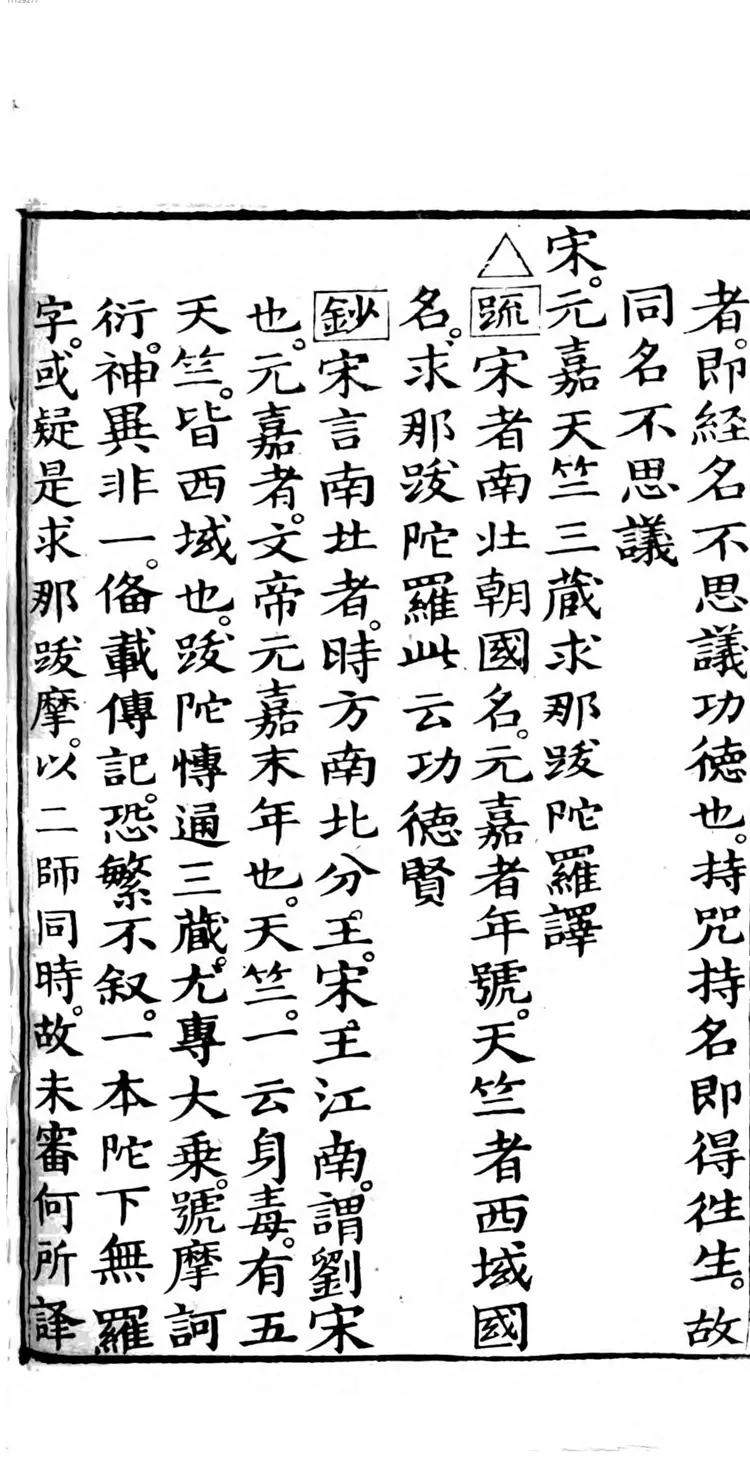 11129277
者。即経名不思議功徳也。持咒持名即得徃生。故
同名不思議
宋。元嘉天竺三蔵求那跋陀羅譯
△疏宋者南北朝國名。元嘉者年號。天竺者西域國
名。求那跋陀羅此云功徳賢
鈔宋言南北者。時方南北分王。宋王江南。謂劉宋
也。元嘉者。文帝元嘉末年也。天竺。一云身毒。有五
天竺。皆西域也。跋陀慱通三蔵。尤專大乗。號摩訶
衍。神異非一。俻載傳記。恐繁不叙。一本陀下無羅
字。或疑是求那跋摩。以二師同時。故未審何所譯